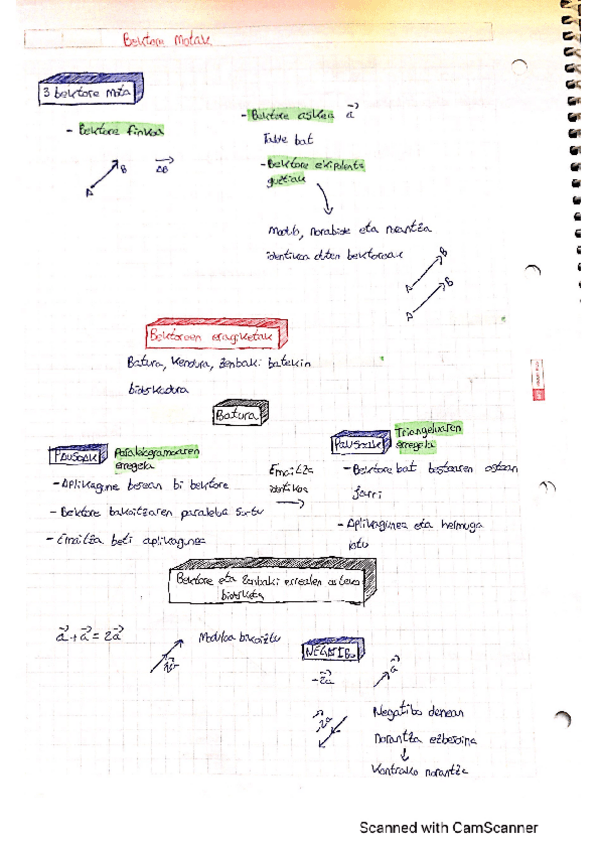 Bektore Motak
3 bektore mota
- Bektore finkoa
A B AB
- Bektore askea a
Talde bat
- Bektore ekipolente
guztiak
Modulo, norabide eta norantza
identikoa duten bektoreak
A B
A B
Bektoreen eragiketak
Batura, Kendura, Zenbaki batekin
biderkadura
Batura
PAUSOAK Paralelogramoaren
erregela
- Aplikagune berean bi bektore
- Bektore bakoitzaren paraleloa sortu
- Emaitza beti aplikagunea
Emaitza
identikoa
PAUSOAK Triangeluaren
erregela
- Bektore bat bestearen ostean
jarri
- Aplikagunea eta helmuga
lotu
Bektore eta Zenbaki errealen arteko
biderketa
a + a = 2a
2a
Modulua bikoiztu
NEGATIBO
-2a
a
-2a
Negatibo denean
norantza ezberdina
Kontrako norantza
Scanned with CamScanner